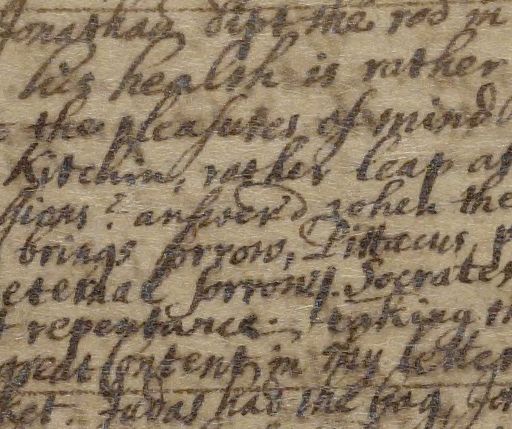 Jonathan dipt the rod in
his health is rather
the pleasures of mind
Kitchin, rather leap
sions? answer'd when the
brings sorrow, Pittacus,
eternal sorrow? Socrates
repentance. taking
great Content, in my letter
ket. Judas had the bag,